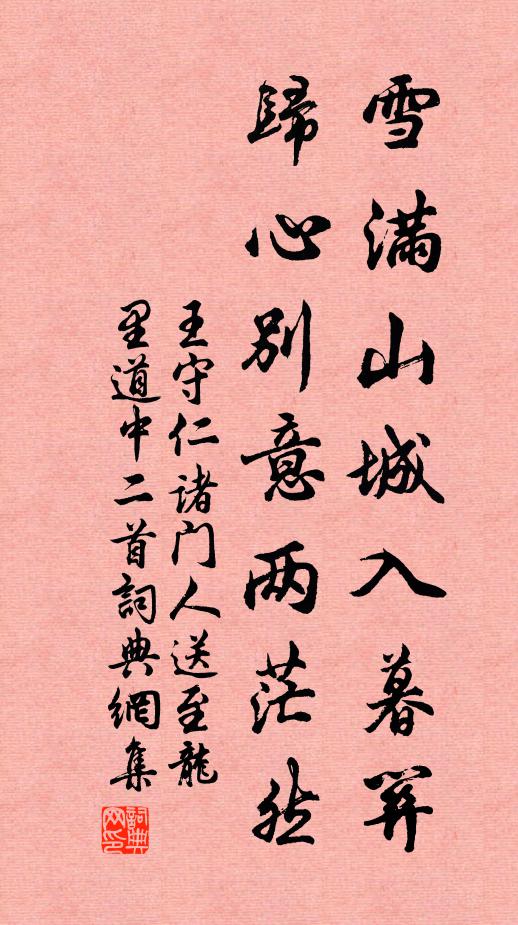 雪滿山城入暮
歸心别意两茫然
王守仁诸门人送至龍
里道中二首詞典網集
詞典网印